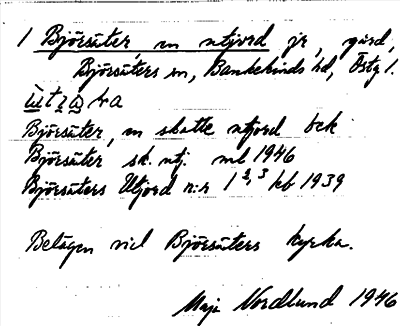 1 Björsäter en utjord jr, gård,
Björsäters sn, Bankekinds hd, Östg l.
Björsäter, en skatte utjord bek
Björsäter sk. utj. ml 1946
Björsäters Utjord n:r 1 2, 3 kb 1939
Belägen vid Björsäters kyrka.
Maja Nordlund 1946